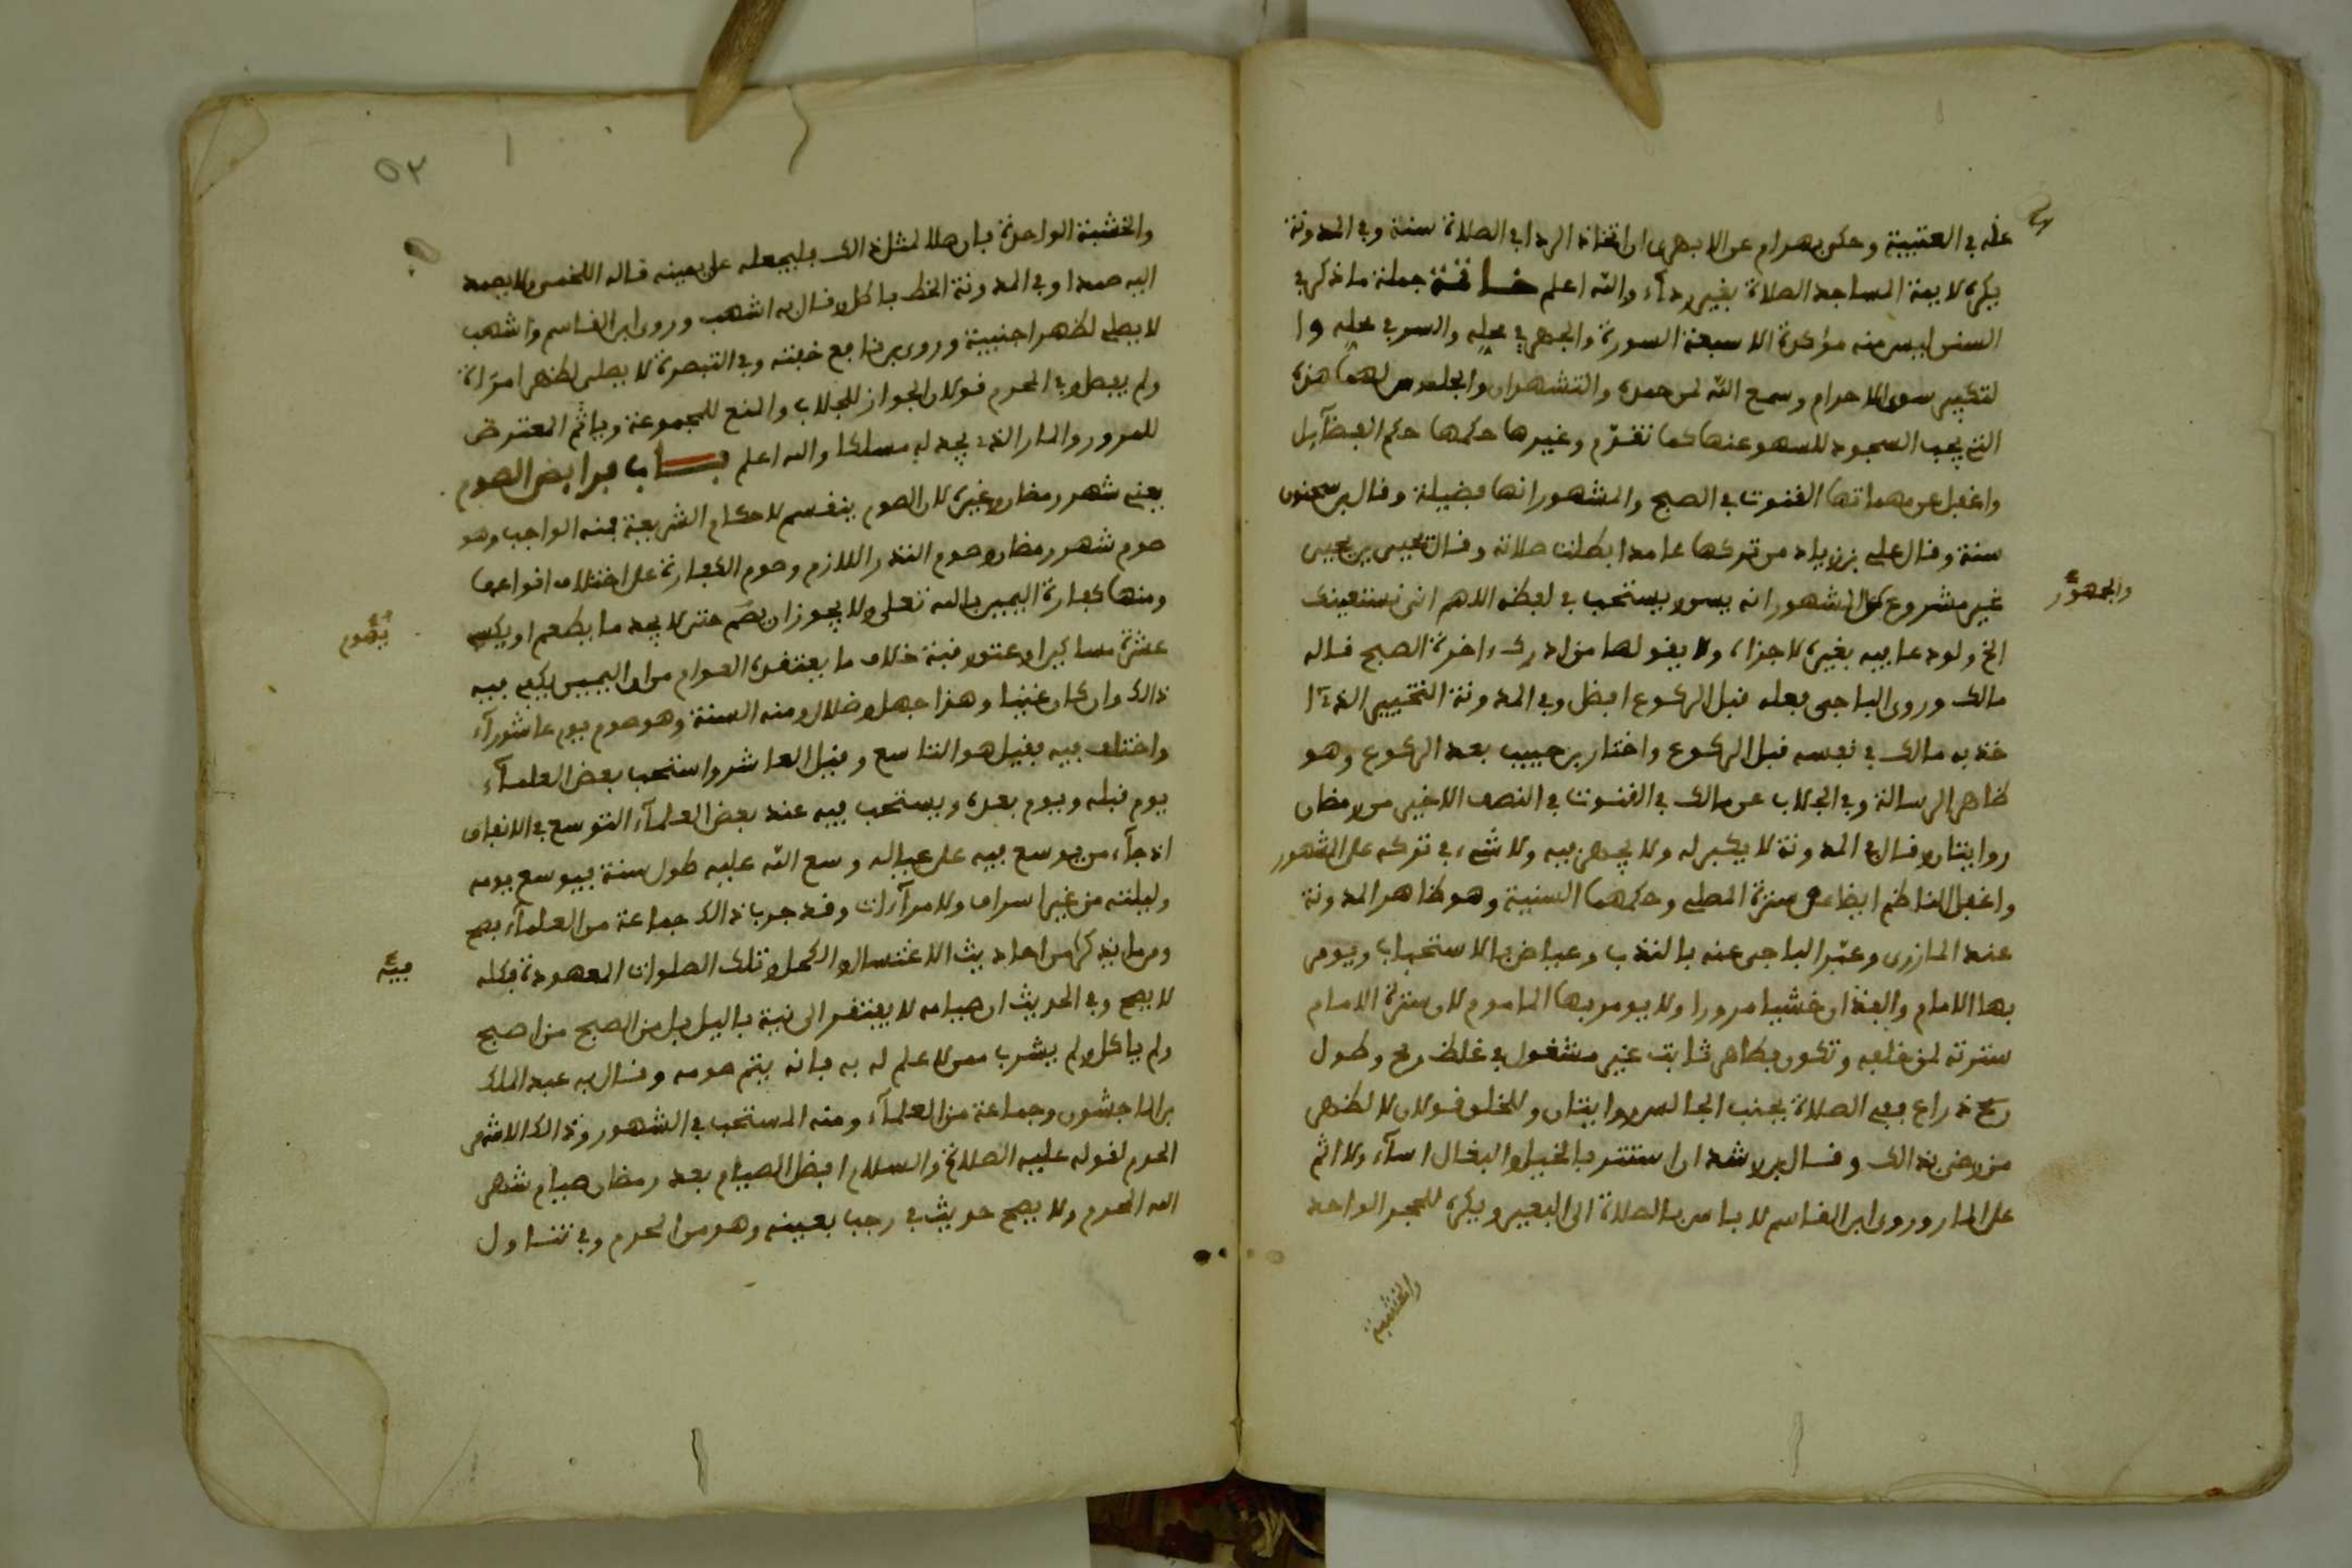 عنه في العتبية وحكى بهرام عن الابهرى ان اتخاذ الردا في الصلاة سنة وفي المدونة
يكره لايمة المساجد الصلاة بغير رداء والله اعلم خاتمة جملة ما ذكر في
السنن ليس منه مؤكدة الا سبعة السورة والجهر في محله والسر في محله وا
لتكبير سوى الاحرام وسمع الله لمن حمده والتشهدان والجلوس لهما هذه
التي يجب السجود للسهو عنها كما تقدم وغيرها حكمها حكم الفضآيل
واغفل من مهماتها القنوت في الصبح والمشهور انها فضيلة وقال بن سحنون
سنة وقال علي بن زياد من تركها عامدا بطلت صلاته وقال يحيى بن يحيى
غير مشروع المشهور انه يسر ويستحب في لفظه اللهم انى نستعينك
والجهور
الخ ولو دعا فيه بغيره لاجزاه ولا يقولها من ادرك اخرة الصبح قاله
مالك وروى الباجى فعله قبل الركوع افضل وفي المدونة التخيير الذى ا
خذ به مالك في نفسه قبل الركوع واختار بن حبيب بعد الركوع وهو
ظاهر الرسالة وفي الجلاب عن مالك في القنوت في النصف الاخير من رمضان
روايتان وقال في المدونة لا يكبر له ولا يجهر فيه ولا شيء في تركه على المشهور
واغفل الناظم ايضا سترة المصلي وحكمها السنية وهو ظاهر المدونة
عند المازرى وعبّر الباجى عنه بالندب وعياض بالاستحباب ويومر
بها الامام والفذ ان خشيا مرورا ولا يومر بها الماموم لان سترة الامام
سترته لمن خلفه وتكون بطاهر ثابت غير مشغول في غلظ رمح وطول
ذراع ففي الصلاة بجنب الجالس روايتان وللخلو قولان لا لظهر
من رضى بذالك وقال بن رشد ان استتر بالخيل والبغال اسآء ولا اثم
على المار وروى ابن القاسم لا باس بالصلاة الى البعير ويكره للحجر الواحد
والخشبة
٥٢
والخشبة الواحدة فان صلا لمثل ذالك فليجعله على يمينه قاله اللخمى ولا يصمد
اليه صمدا وفي المدونة الخط باطل وقال به اشهب وروى ابن القاسم واشهب
لا يصلي لظهر اجنبية وروى بن نافع خفته وفي التبصرة لا يصلى لظهر امرأة
ولم يفصل وفي المحرم قولان الجواز للجلاب والمنع للمجموعة وياثم المعترض
للمرور والمار الذى يجد له مسلكا والله اعلم باب فرايض الصوم
يعني شهر رمضان وغيره لان الصوم ينقسم لاحكام الشريعة فمنه الواجب وهو
صوم شهر رمضان وصوم النذر اللازم وصوم الكفارة على اختلاف انواعها
ومنها كفارة اليمين بالله تعلى ولا يجوز ان يصم حتى لا يجد ما يطعم او يكسي
يصوم
عشرة مساكين او عتق رقبة خلاف ما يعتقده العوام من ان اليمين يكفي فيه
ذالك وان كان غنيا وهذا جهل وضلال ومنه السنة وهو صوم يوم عاشورآء
واختلف فيه فقيل هو التاسع وقيل العاشر واستحب بعض العلمآء
يوم قبله ويوم بعده ويستحب فيه عند بعض العلمآء التوسع في الانفاق
اذ جآء من يوسع فيه على عياله وسع الله عليه طول سنة فيوسع يومه
وليلته من غير اسراف ولا مرآءات وقد جرب ذالك جماعة من العلمآء فصح
وما يذكر من احاديث الاغتسال والكحل وتلك الصلوات المعهودة فكله
فيه
لا يصح وفي الحديث ان صيامه لا يفتقر الى نية باليل بل من الصبح من اصبح
ولم ياكل ولم يشرب ممن لا علم له به فانه يتم صومه وقال به عبد الملك
بن الماجشون وجماعة من العلمآء ومنه المستحب في الشهور وذالك الاشهر
الحرم لقوله عليه الصلاة والسلام افضل الصيام بعد رمضان صيام شهر
الله المحرم ولا يصح حديث في رجب بعينه وهو من الحرم وفي تناول